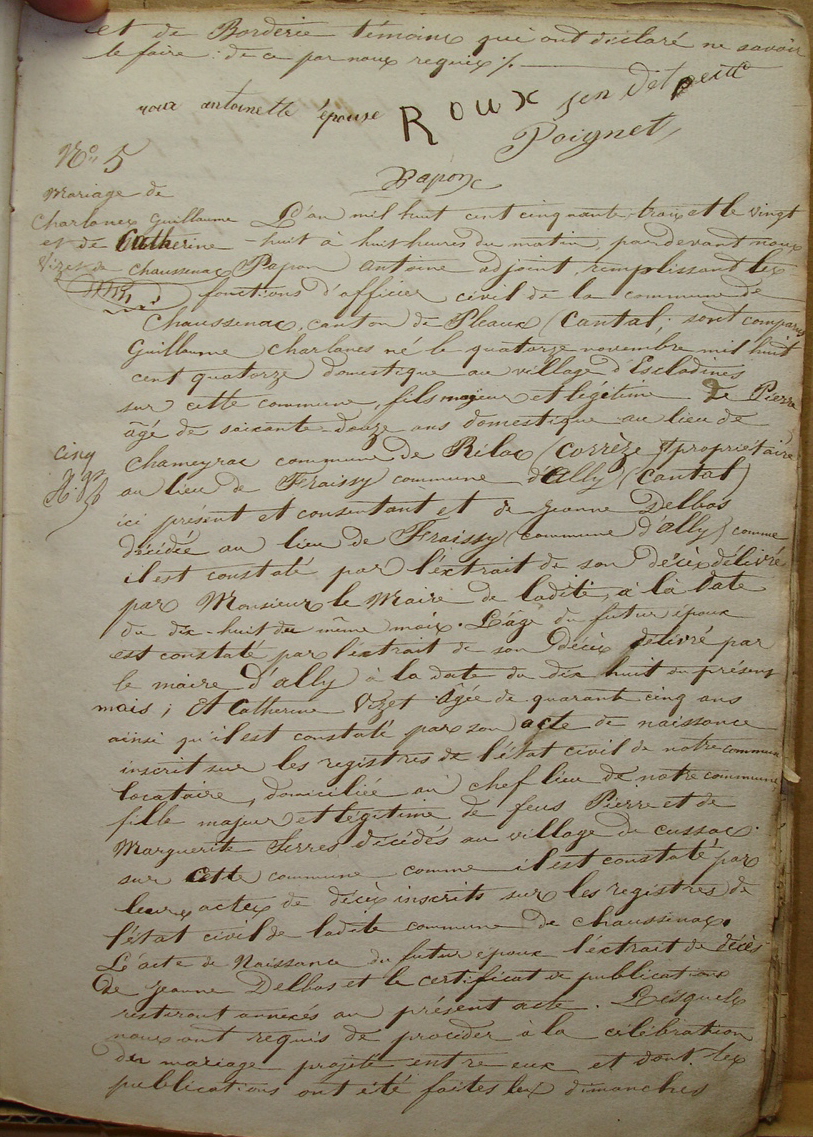 et de Borderie témoins qui ont déclaré ne savoir
le faire : de ce par nous requis %.
roux antoinette épouse Roux
Poignet
Papon
No 5
Mariage de
Charlanes Guillaume
et de Catherine
Vizet de Chaussenac
cinq
L'an mil huit cent cinquante trois et le vingt
huit à huit heures du matin, par devant nous
Papon antoine adjoint remplissant les
fonctions d'officier civil de la commune de
Chaussenac, canton de Pleaux (Cantal, sont comparus
Guillaume Charlanes né le quatorze novembre mil huit
cent quatorze domestique au village d'Escladines
sur cette commune, fils majeur et légitime de Pierre
âgé de soixante-douze ans domestique au lieu de
Chameyrac commune de Rilac (Corrèze propriétaire
au lieu de Fraissy commune d'Ally (Cantal)
ici présent et consentant et de Jeanne Delbos
décédée au lieu de Fraissy (commune d'ally) comme
il est constaté par l'extrait de son décès délivré
par Monsieur le Maire de ladite, à la date
du dix-huit du même mois. L'âge du futur époux
est constaté par l'extrait de son décès délivré par
le maire d'ally à la date du dix huit du présent
mois ; Et Catherine Vizet âgée de quarante cinq ans
ainsi qu'il est constaté par son acte de naissance
inscrit sur les registres de l'état civil de notre commune
locataire, domiciliée au chef lieu de notre commune
fille majeur et légitime de feus Pierre et de
Marguerite Serres décédés au village de cussac
sur cette commune comme il est constaté par
leurs actes de décès inscrits sur les registres de
l'état civil de ladite commune de chaussenac.
L'acte de Naissance du futur époux l'extrait de décès
de jeanne Delbos et le certificat de publications
resteront annexés au présent acte. Lesquels
nous ont requis de procéder à la célébration
du mariage projeté entre eux et dont les
publications ont été faites les dimanches